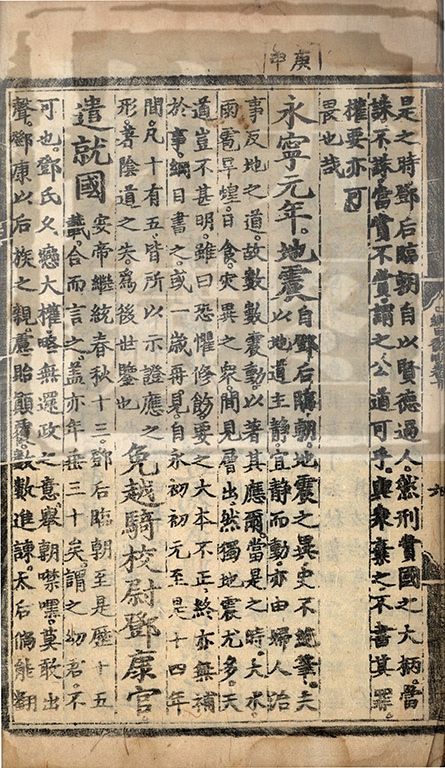 庚申
是之時鄧后臨朝自以賢德過人然刑賞國之大柄當
誅不誅當賞不賞謂之公道可乎與衆棄之不書其罪
權要亦可
畏也哉
永寧元年地震
自鄧后臨朝地震之異史不絶筆夫
以地道主靜宜靜而動亦由婦人治
事反地之道故數數震動以著其應爾當是之時大水
雨雹旱蝗日食灾異之衆間見層出然獨地震尤多天
道豈不甚明雖曰恐懼修飭要之大本不正終亦無補
於事綱目書之或一歲再見自永初初元至是十四年
間凡十有五皆所以示證應之
形著陰道之失爲後世鑒也
免越騎校尉鄧康官
遣就國
安帝繼統春秋十三鄧后臨朝至是歷十五
載合而言之蓋亦年垂三十矣謂之幼君不
可也鄧氏久戀大權略無還政之意擧朝噤嘿莫敢出
聲鄧康以后族之親慮貽顚覆數數進諫太后倘能翻
六